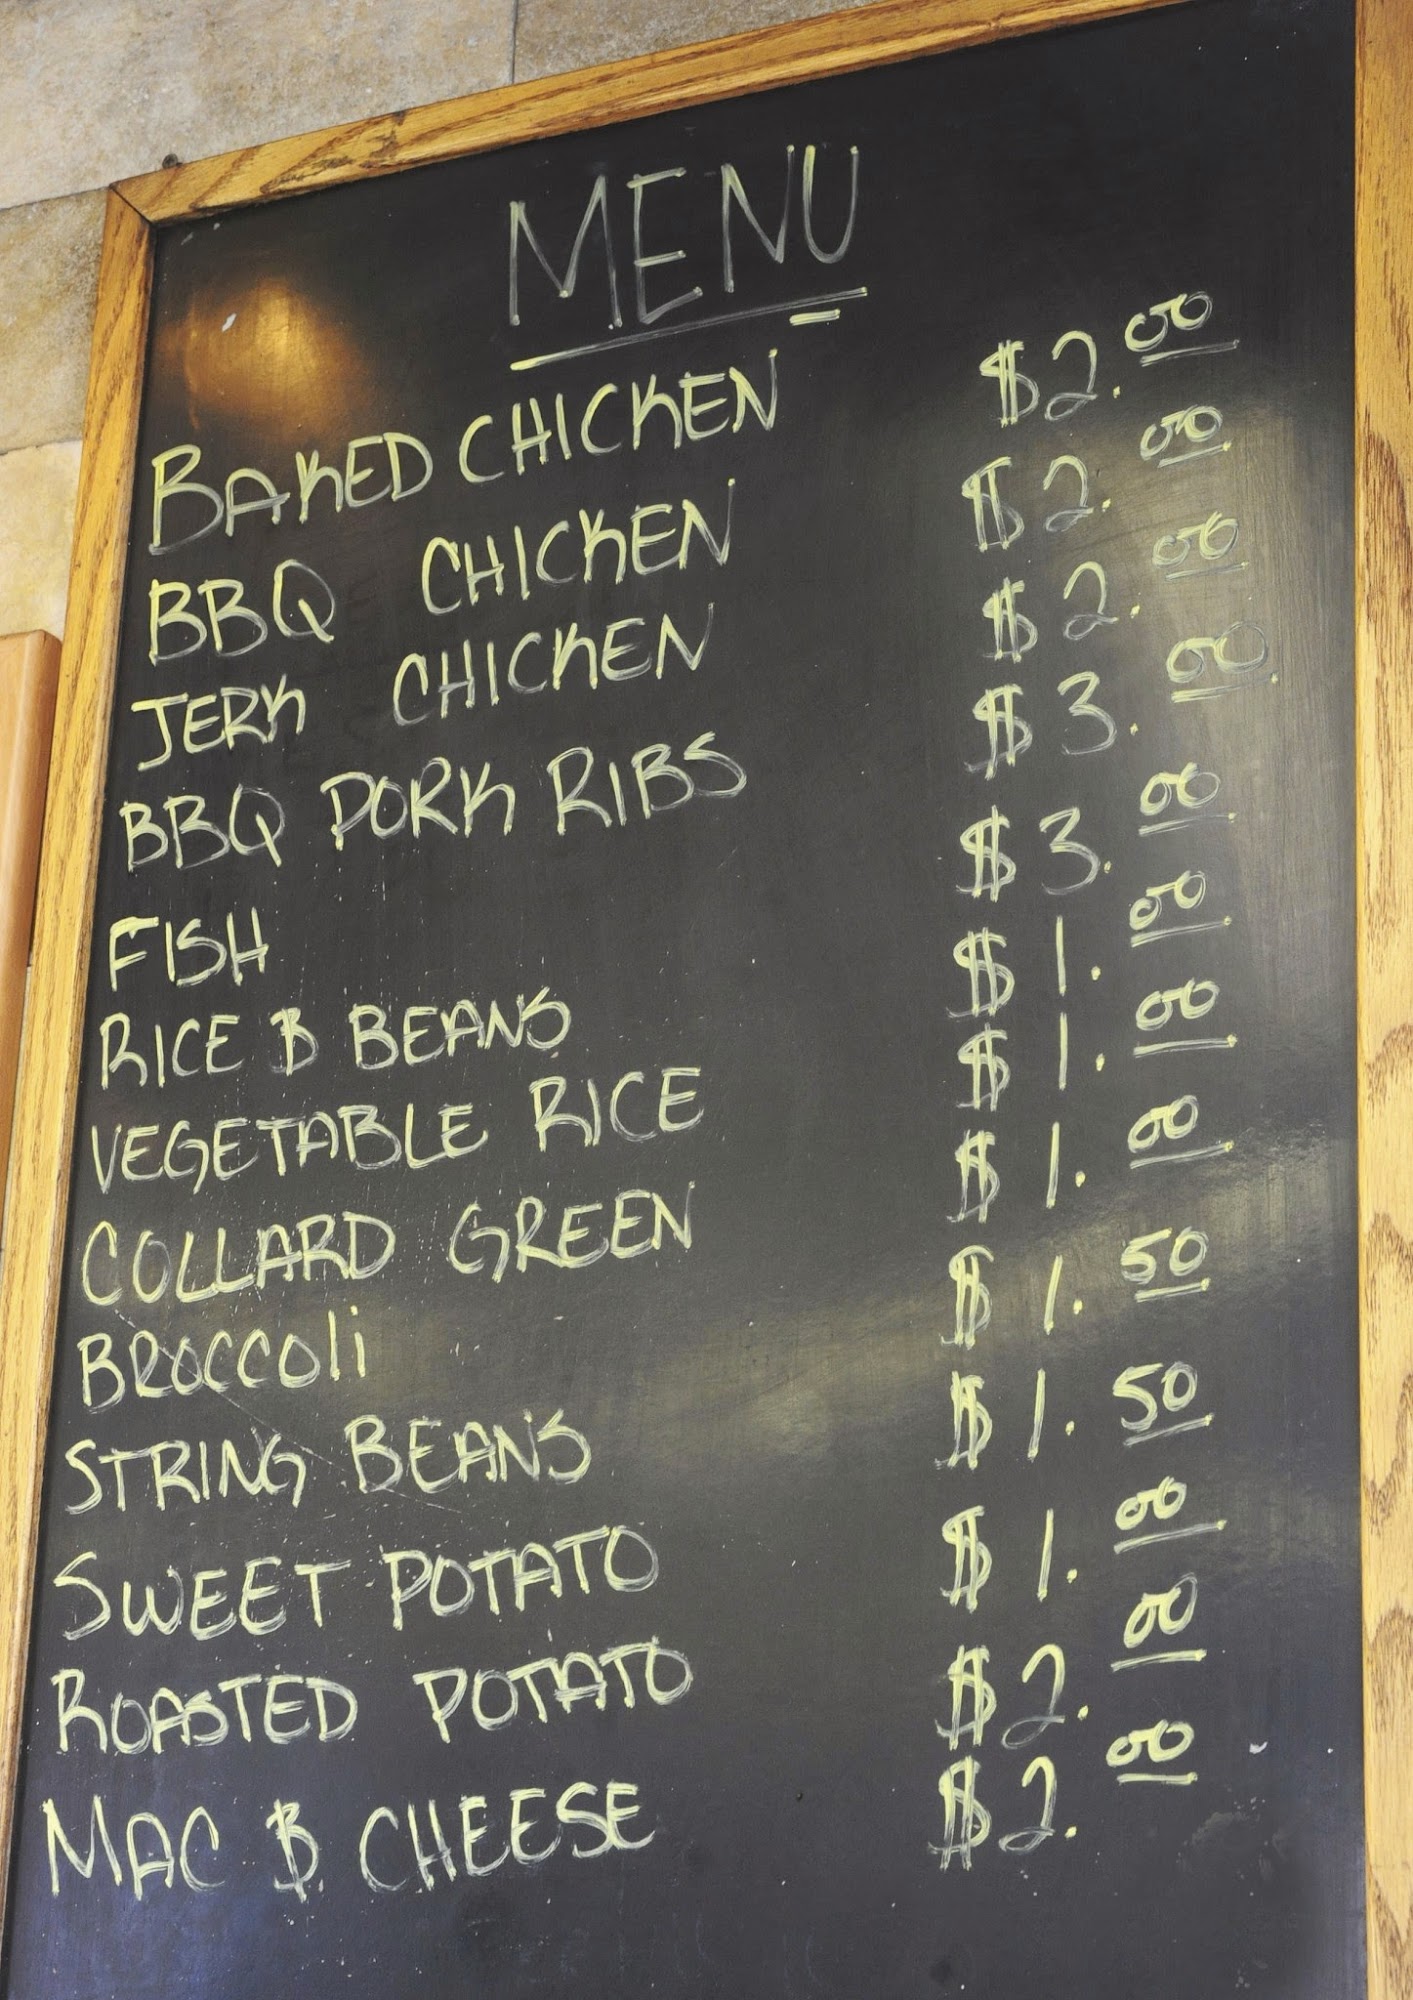 MENU
BAKED CHICKEN $2.00
BBQ CHICKEN $2.00
JERK CHICKEN $2.00
BBQ PORK RIBS $3.00
FISH $3.00
RICE & BEANS $1.00
VEGETABLE RICE $1.00
COLLARD GREEN $1.00
BROCCOLi $1.50
STRING BEANS $1.50
SWEET POTATO $1.00
ROASTED POTATO $2.00
MAC & CHEESE $2.00